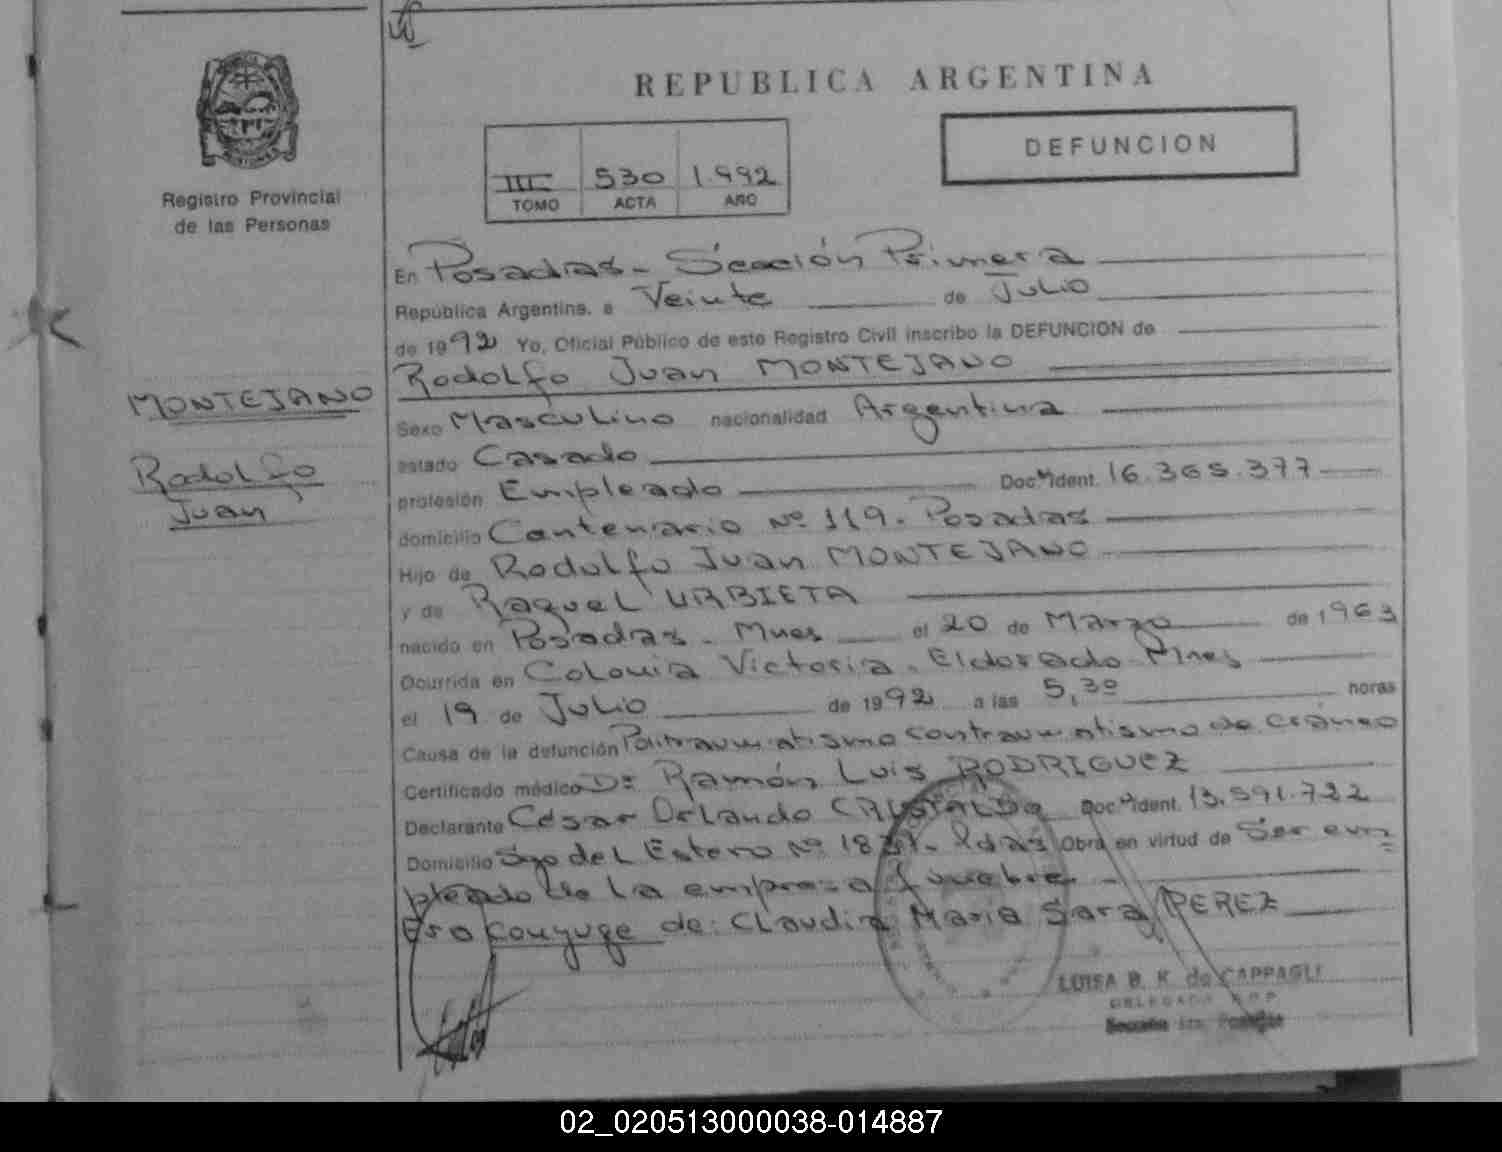 REPUBLICA ARGENTINA
DEFUNCION
Registro Provincial
de las Personas
III 530 1.992
TOMO ACTA AÑO
En Posadas - Sección Primera
República Argentina, a Veinte de Julio
de 1992 Yo, Oficial Público de este Registro Civil inscribo la DEFUNCION de
Rodolfo Juan MONTEJANO
MONTEJANO
Rodolfo
Juan
Sexo Masculino nacionalidad Argentina
estado Casado
profesión Empleado Doc. Ident. 16.365.377
domicilio Centenario Nº 119. Posadas
Hijo de Rodolfo Juan MONTEJANO
y de Raquel URBIETA
nacido en Posadas - Mnes el 20 de Marzo de 1963
Ocurrida en Colonia Victoria. Eldorado Mnes
el 19 de Julio de 1992 a las 5,30 horas
Causa de la defunción Politraumatismo con traumatismo de cráneo
Certificado médico Dr Ramón Luis RODRIGUEZ
Declarante César Orlando Doc. Ident. 13.591.722
Domicilio Sgo del Estero Nº Pdas Obra en virtud de Ser em
pleado de la empresa fúnebre
Era conyuge de: Claudia Maria Sara PEREZ
LUISA B. K. de CAPPAGLI
DELEGADA R.P.P.
Sección 1ra Posadas
02_020513000038-014887